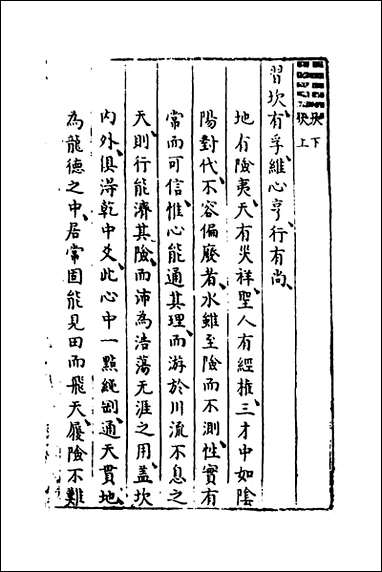 坎下
坎上
習坎、有孚、維心亨、行有尚、
地有險夷、天有災祥、聖人有經權、三才中如陰
陽對代、不容偏廢者、水雖至險而不測、性實有
常而可信、惟心能通其理、而游於川流不息之
天、則行能濟其險、而沛為浩蕩无涯之用、蓋坎
内外、俱得乾中爻、此心中一點純剛、通天貫地、
為龍德之中、居常固能見田而飛天、履險不難